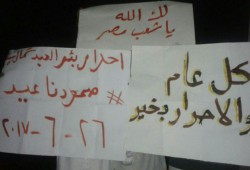 لك الله
يا شعب مصر
احرار بئر العبد شمال سيناء
# صمودنا عيد
٢٦ - ٦ - ٢٠١٧
كل عام
والاحرار بخير